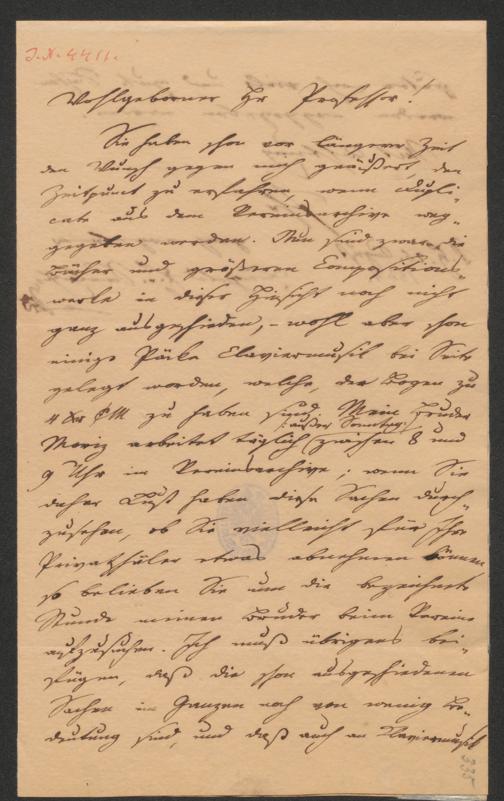 J.N. 4411.
Wohlgeborner Hr Professor!
Sie haben schon vor längerer Zeit
den Wunsch gegen mich geäußert, den
Zeitpunct zu erfahren, wenn dupli-
cate aus dem Vereinsarchive weg-
gegeben werden. Nun sind zwar die
Bücher und größeren Compositions-
werke in dieser Hinsicht noch nicht
ganz ausgeschieden, - wohl aber schon
einige Päcke Claviermusik bei Seite
gelegt worden, welche, der Bogen zu
4 Xr CM zu haben sind. Mein Bruder
Moriz arbeitet täglich (zwischen 8 und
/: außer Sonntag :/
9 Uhr im Vereinsarchive; wenn Sie
daher Lust haben diese Sachen durch-
zusehen, ob Sie vielleicht für Ihre
Privatschüler etwas abnehmen können
so belieben Sie um die bezeichnete
Stunde meinen Bruder beim Vereine
aufzusuchen. Ich muß übrigens bei-
fügen, daß die schon ausgeschiedenen
Sachen im Ganzen noch von wenig Be-
deutung sind, und daß auch an Claviermusik
335